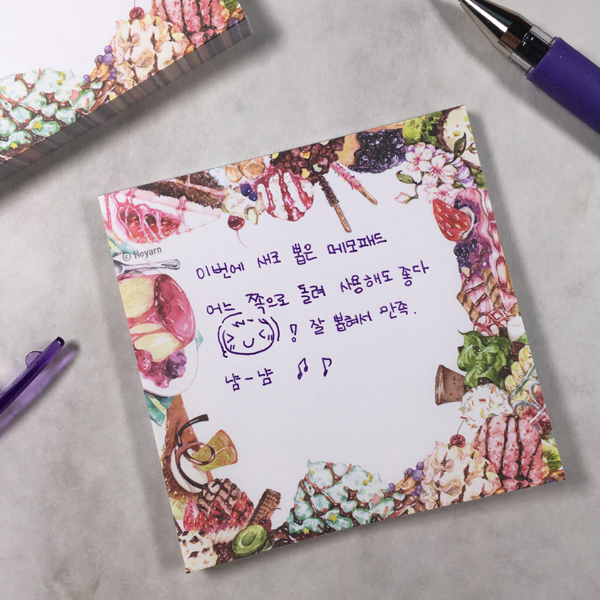 © Hoyarn
이번에 새로 뽑은 메모패드
어느 쪽으로 돌려 사용해도 좋다
! 잘 뽑혀서 만족.
냠-냠